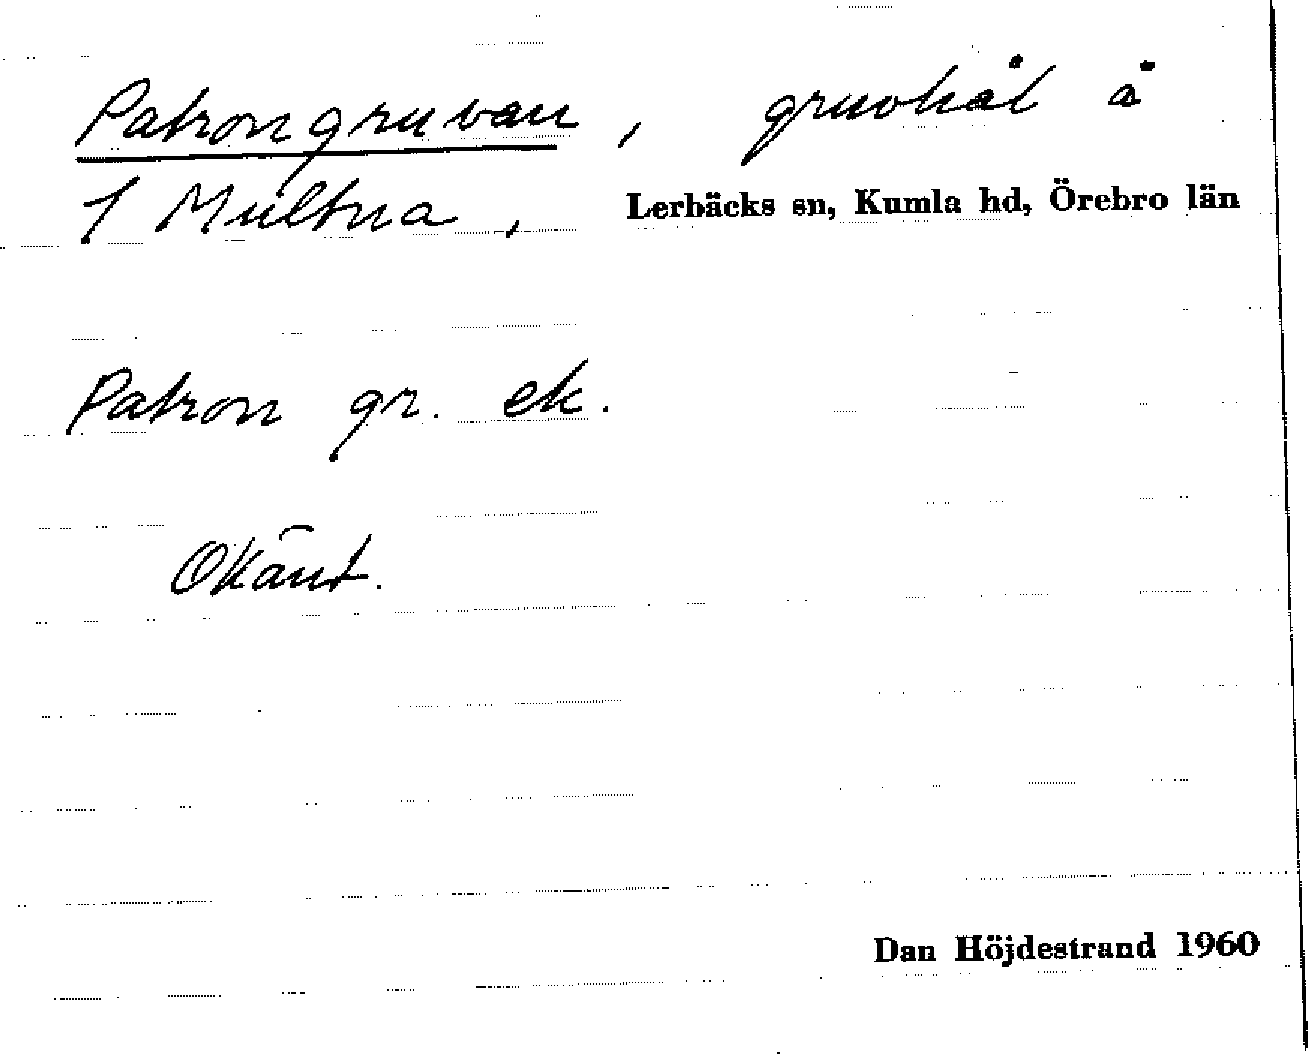 Patrongruvan, gruvhål å
1 Multna, Lerbäcks sn, Kumla hd, Örebro län
Patron gr. ek.
Okänt.
Dan Höjdestrand 1960